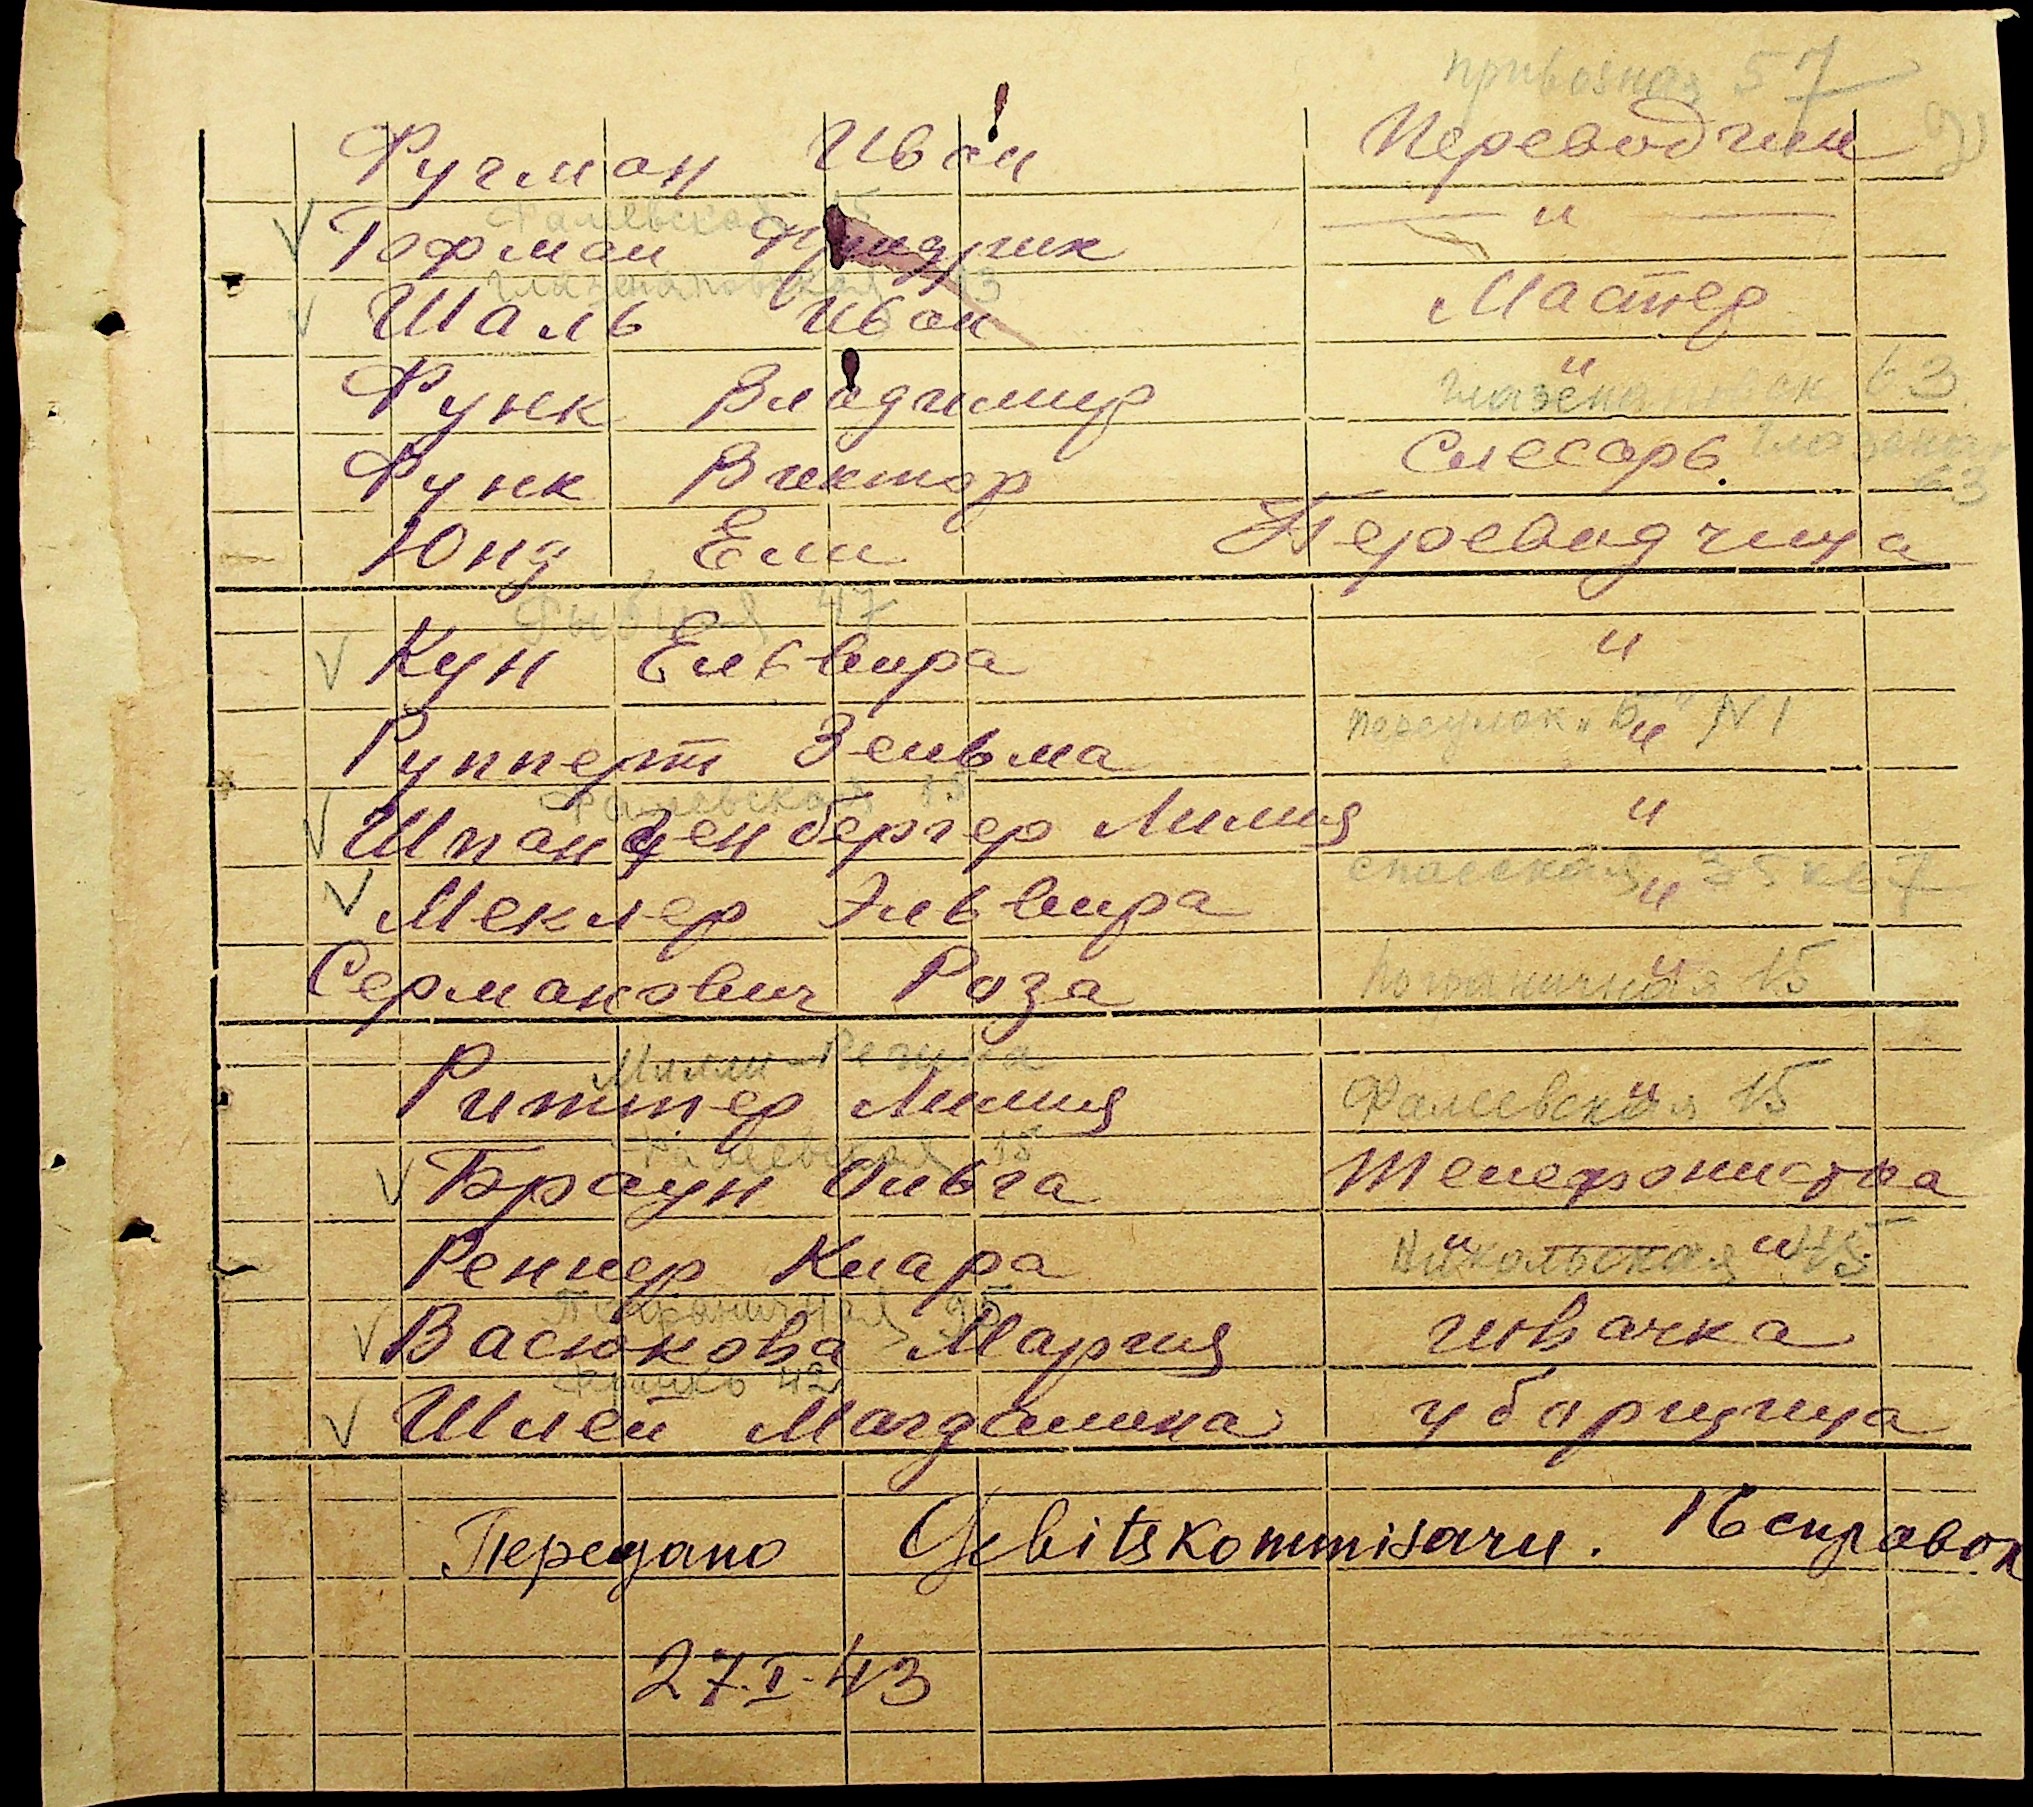 Привозная 57
Фугман Иван Переводчик
Фалеевская 15
Гофман Фридрик — " —
Глазенаповская 63
Шаль Иван Мастер
Функ Владимир "
63
Функ Виктор Слесарь.
63
Юнд Ели Переводчица
Рыбная 47
Кун Ельвира "
Рупперт Зельма "
Переулок "Б" N 1
Фалеевская 15
Шпанценбергер Лилия "
Меклер Эльвира "
Спасская 35 кв 7
Сермакович Роза "
Пограничная 15
Милли-Регина
Риттер Лилия "
Фалеевская 15
Фалеевская 15
Браун Ольга телефонистка
Реннер Клара " — "
Никольская 45
Пограничная 95
Васюкова Мария швачка
42
Шлей Магдалина уборщица
Передано Gebitskommisaru. 16 справок
27.I.43